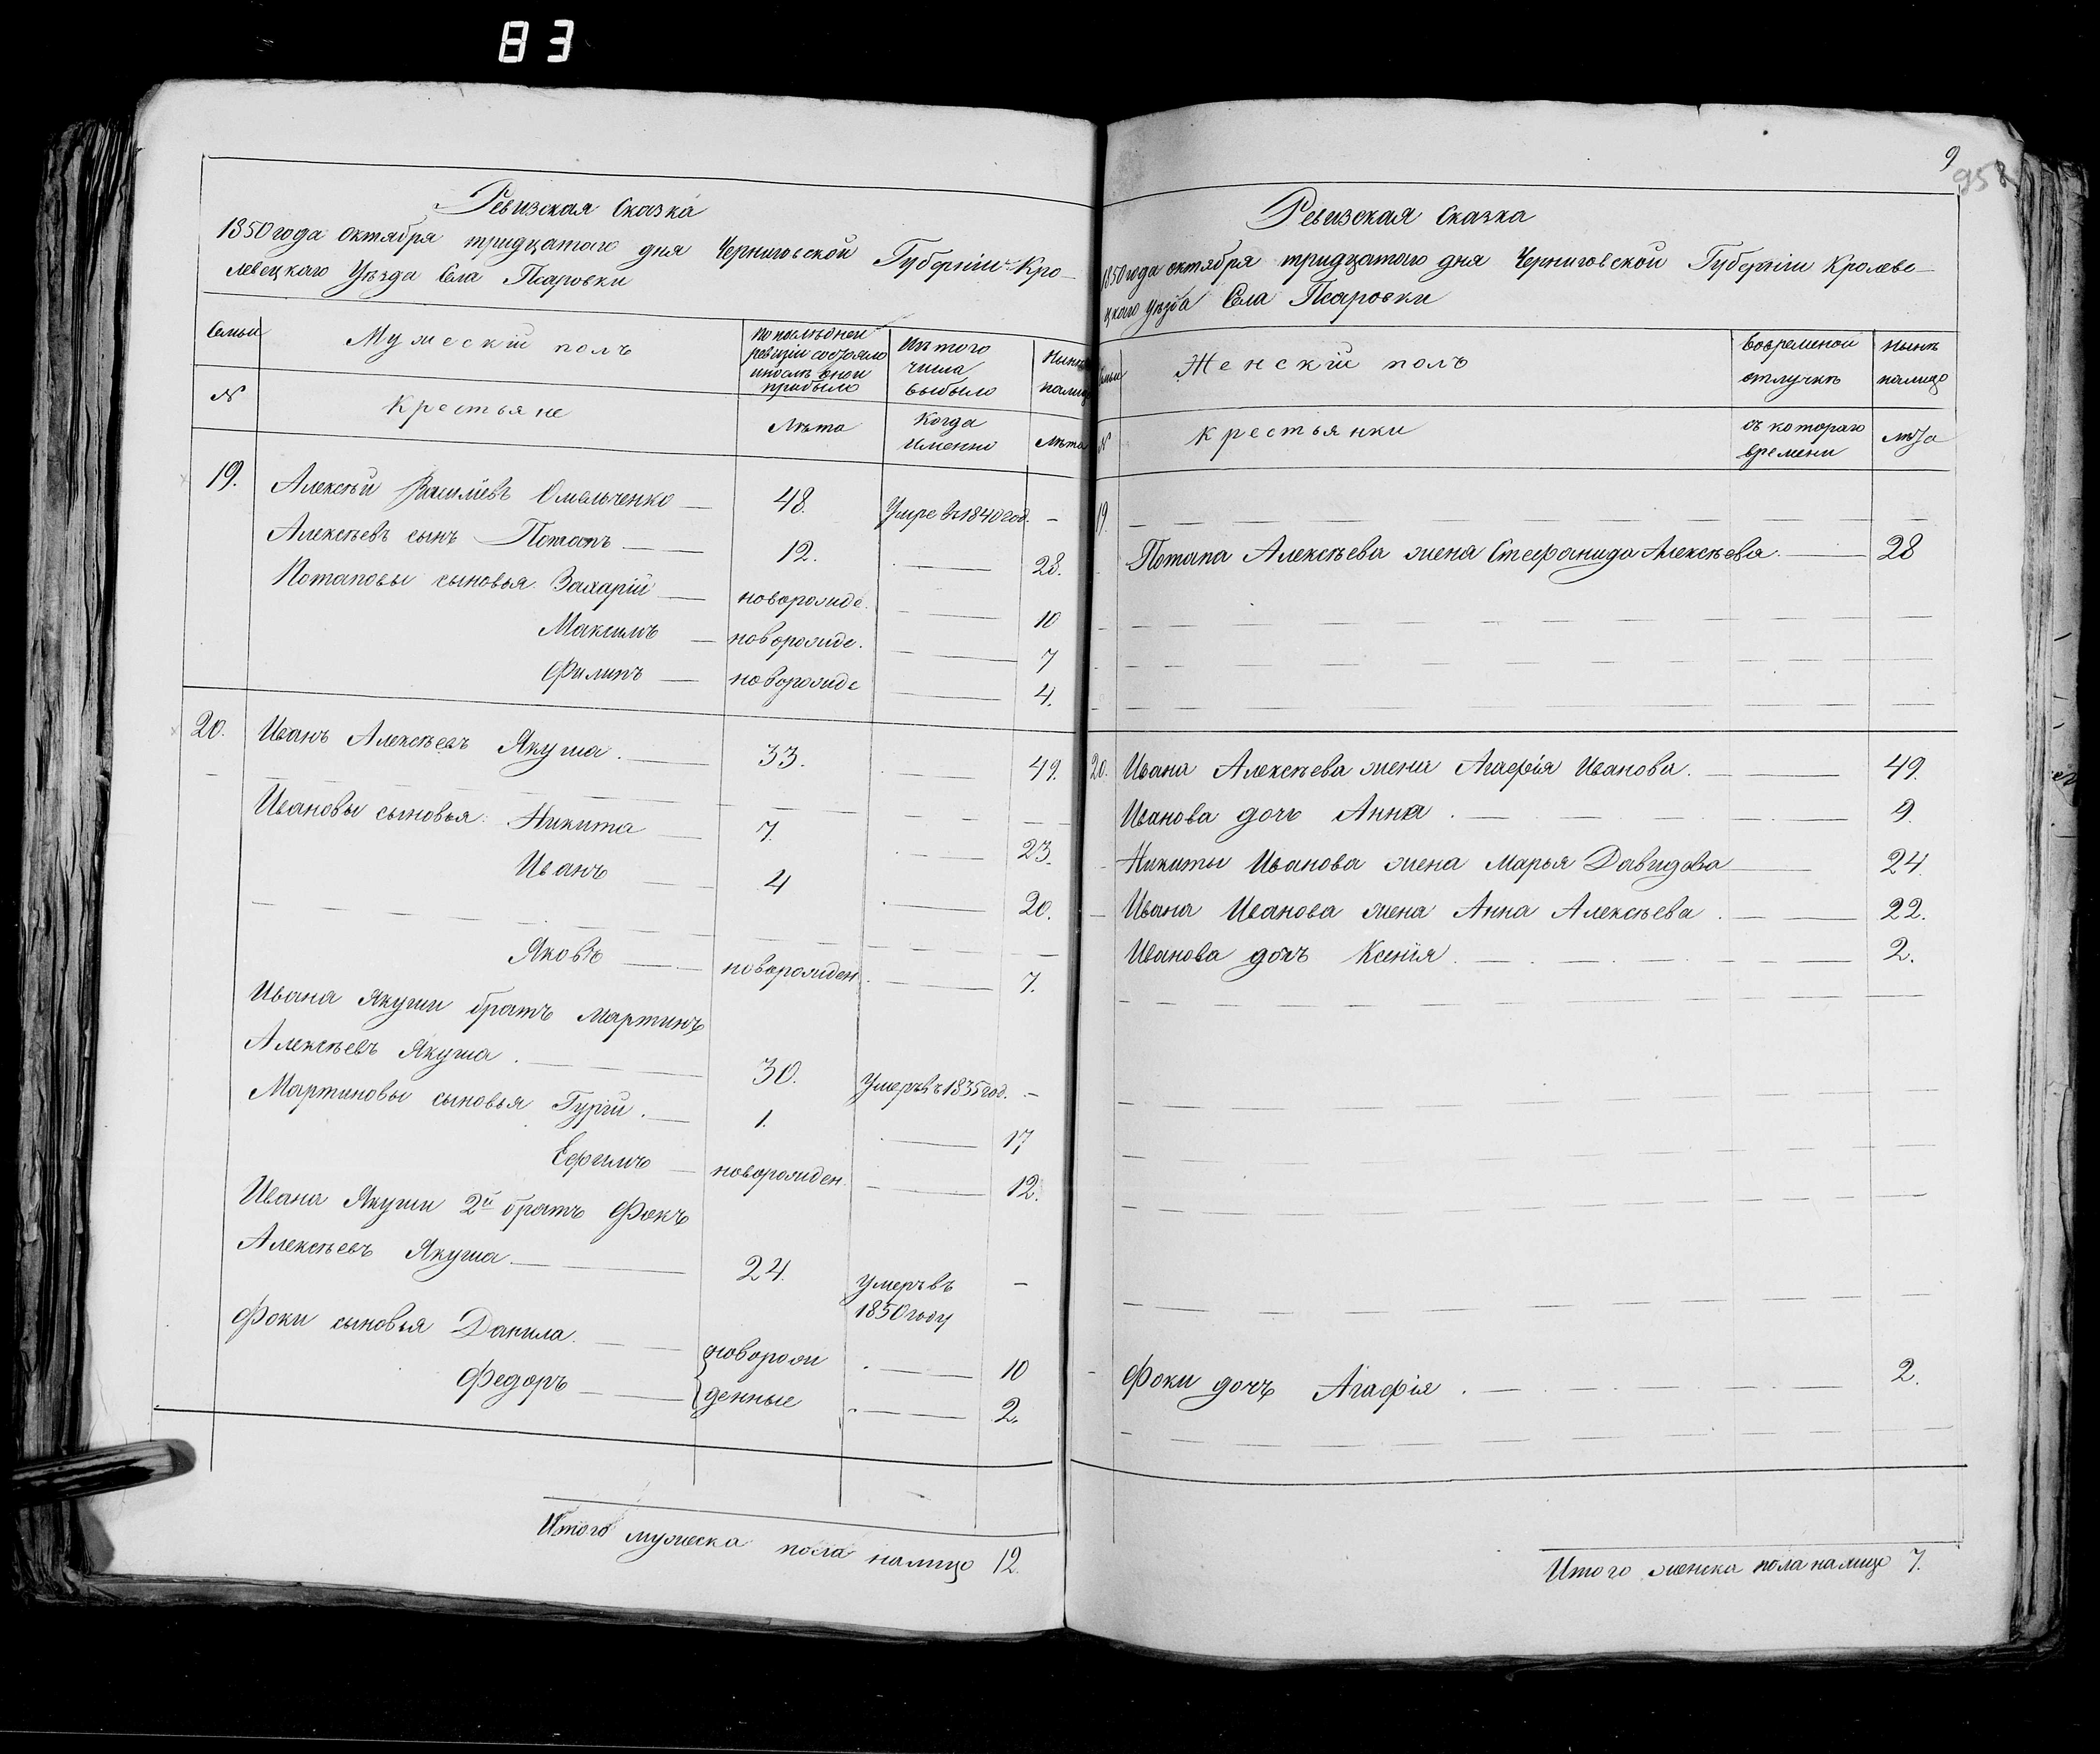 83
Ревизская Сказка
1850 года Октября тридцатаго дня Черниговской Губерніи Кро-
левецкаго Уѣзда Села Псаровки
Семьи
Мужескій полъ
По послѣдней
ревизіи состояло
и послѣ оной
прибыло
Изъ того
числа
выбыло
Нынѣ
налицо
№
Крестьяне
Лѣта
Когда
именно
Лѣта
19. Алексѣй Василіевъ Омельченко — 48. Умре въ 1840 год. —
Алексѣевъ сынъ Потапъ — 12. — 28.
Потаповы сыновья Захарій — новорожде. — 10
Максимъ — новорожде. — 7
Филипъ — новорожде — 4.
20. Иванъ Алексѣевъ Якуша. — 33. — 49.
Ивановы сыновья: Никита — 7. — 23.
Иванъ — 4 — 20.
Яковъ — новорожден. — 7.
Ивана Якуши братъ Мартинъ
Алексѣевъ Якуша. — 30. Умеръ въ 1835 год. —
Мартиновы сыновья Гурій. — 1. — 17
Ефимъ — новорожден. — 12.
Ивана Якуши 2й братъ Фокъ
Алексѣевъ Якуша. — 24. Умеръ въ —
1850 году
Фоки сыновья Данила. — новорож — 10
Федоръ — денные — 2.
Итого мужеска пола налицо 12.
9
958
Ревизская Сказка
1850 года октября тридцатаго дня Черниговской Губерніи Кролеве-
цкаго Уѣзда Села Псаровки
Семьи
Женскій полъ
Вовременой
отлучкѣ
Нынѣ
налицо
№
Крестьянки
съ котораго
времени
лѣта
19
Потапа Алексѣева жена Стефанида Алексѣева. — 28
20. Ивана Алексѣева жена Агафія Иванова. — 49.
Иванова дочь Анна. — 9.
Никиты Иванова жена Марья Давидова — 24.
Ивана Иванова жена Анна Алексѣева. — 22.
Иванова дочъ Ксенія. — 2.
Фоки дочъ Агафія. — 2.
Итого женска пола налицо 7.